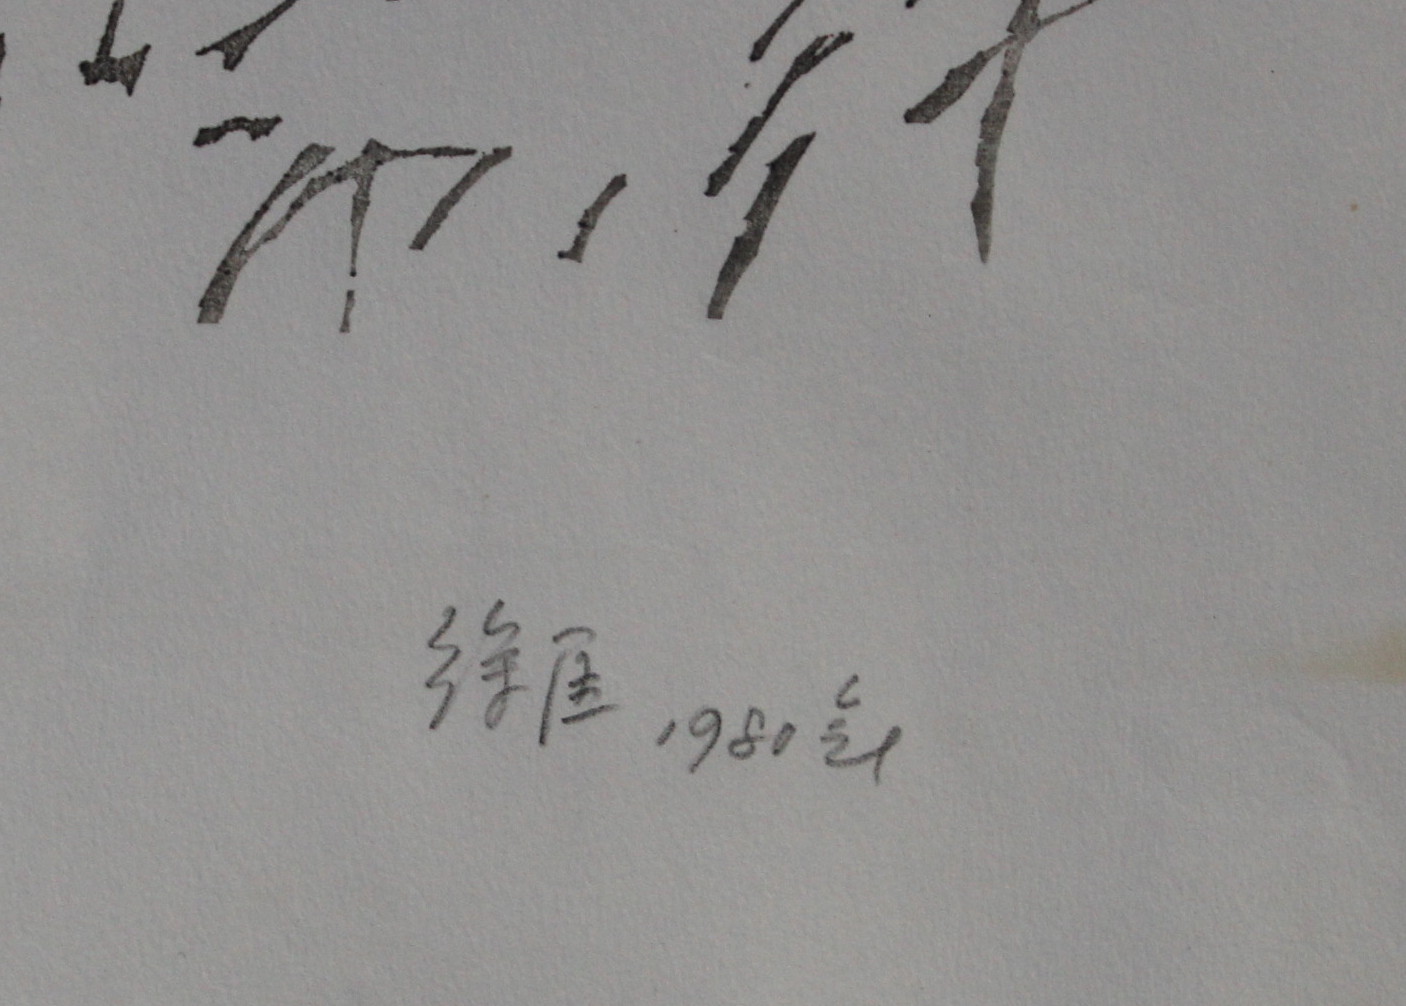 徐匡 1980年